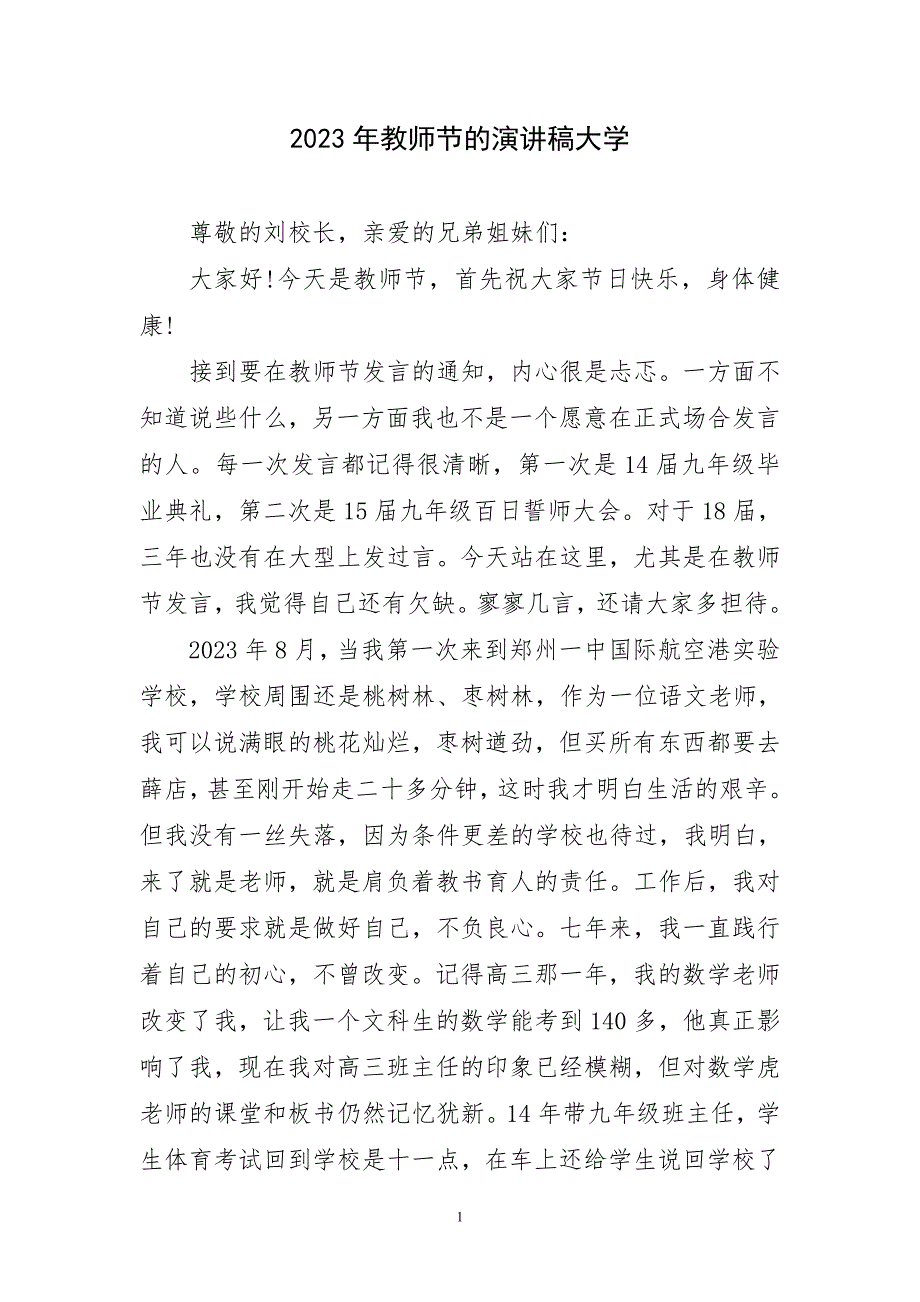 2023年教师节的演讲稿大学
尊敬的刘校长，亲爱的兄弟姐妹们：
大家好!今天是教师节，首先祝大家节日快乐，身体健
康!
接到要在教师节发言的通知，内心很是忐忑。一方面不
知道说些什么，另一方面我也不是一个愿意在正式场合发言
的人。每一次发言都记得很清晰，第一次是14届九年级毕
业典礼，第二次是15届九年级百日誓师大会。对于18届，
三年也没有在大型上发过言。今天站在这里，尤其是在教师
节发言，我觉得自己还有欠缺。寥寥几言，还请大家多担待。
2023年8月，当我第一次来到郑州一中国际航空港实验
学校，学校周围还是桃树林、枣树林，作为一位语文老师，
我可以说满眼的桃花灿烂，枣树遒劲，但买所有东西都要去
薛店，甚至刚开始走二十多分钟，这时我才明白生活的艰辛。
但我没有一丝失落，因为条件更差的学校也待过，我明白，
来了就是老师，就是肩负着教书育人的责任。工作后，我对
自己的要求就是做好自己，不负良心。七年来，我一直践行
着自己的初心，不曾改变。记得高三那一年，我的数学老师
改变了我，让我一个文科生的数学能考到140多，他真正影
响了我，现在我对高三班主任的印象已经模糊，但对数学虎
老师的课堂和板书仍然记忆犹新。14年带九年级班主任，学
生体育考试回到学校是十一点，在车上还给学生说回学校了
1